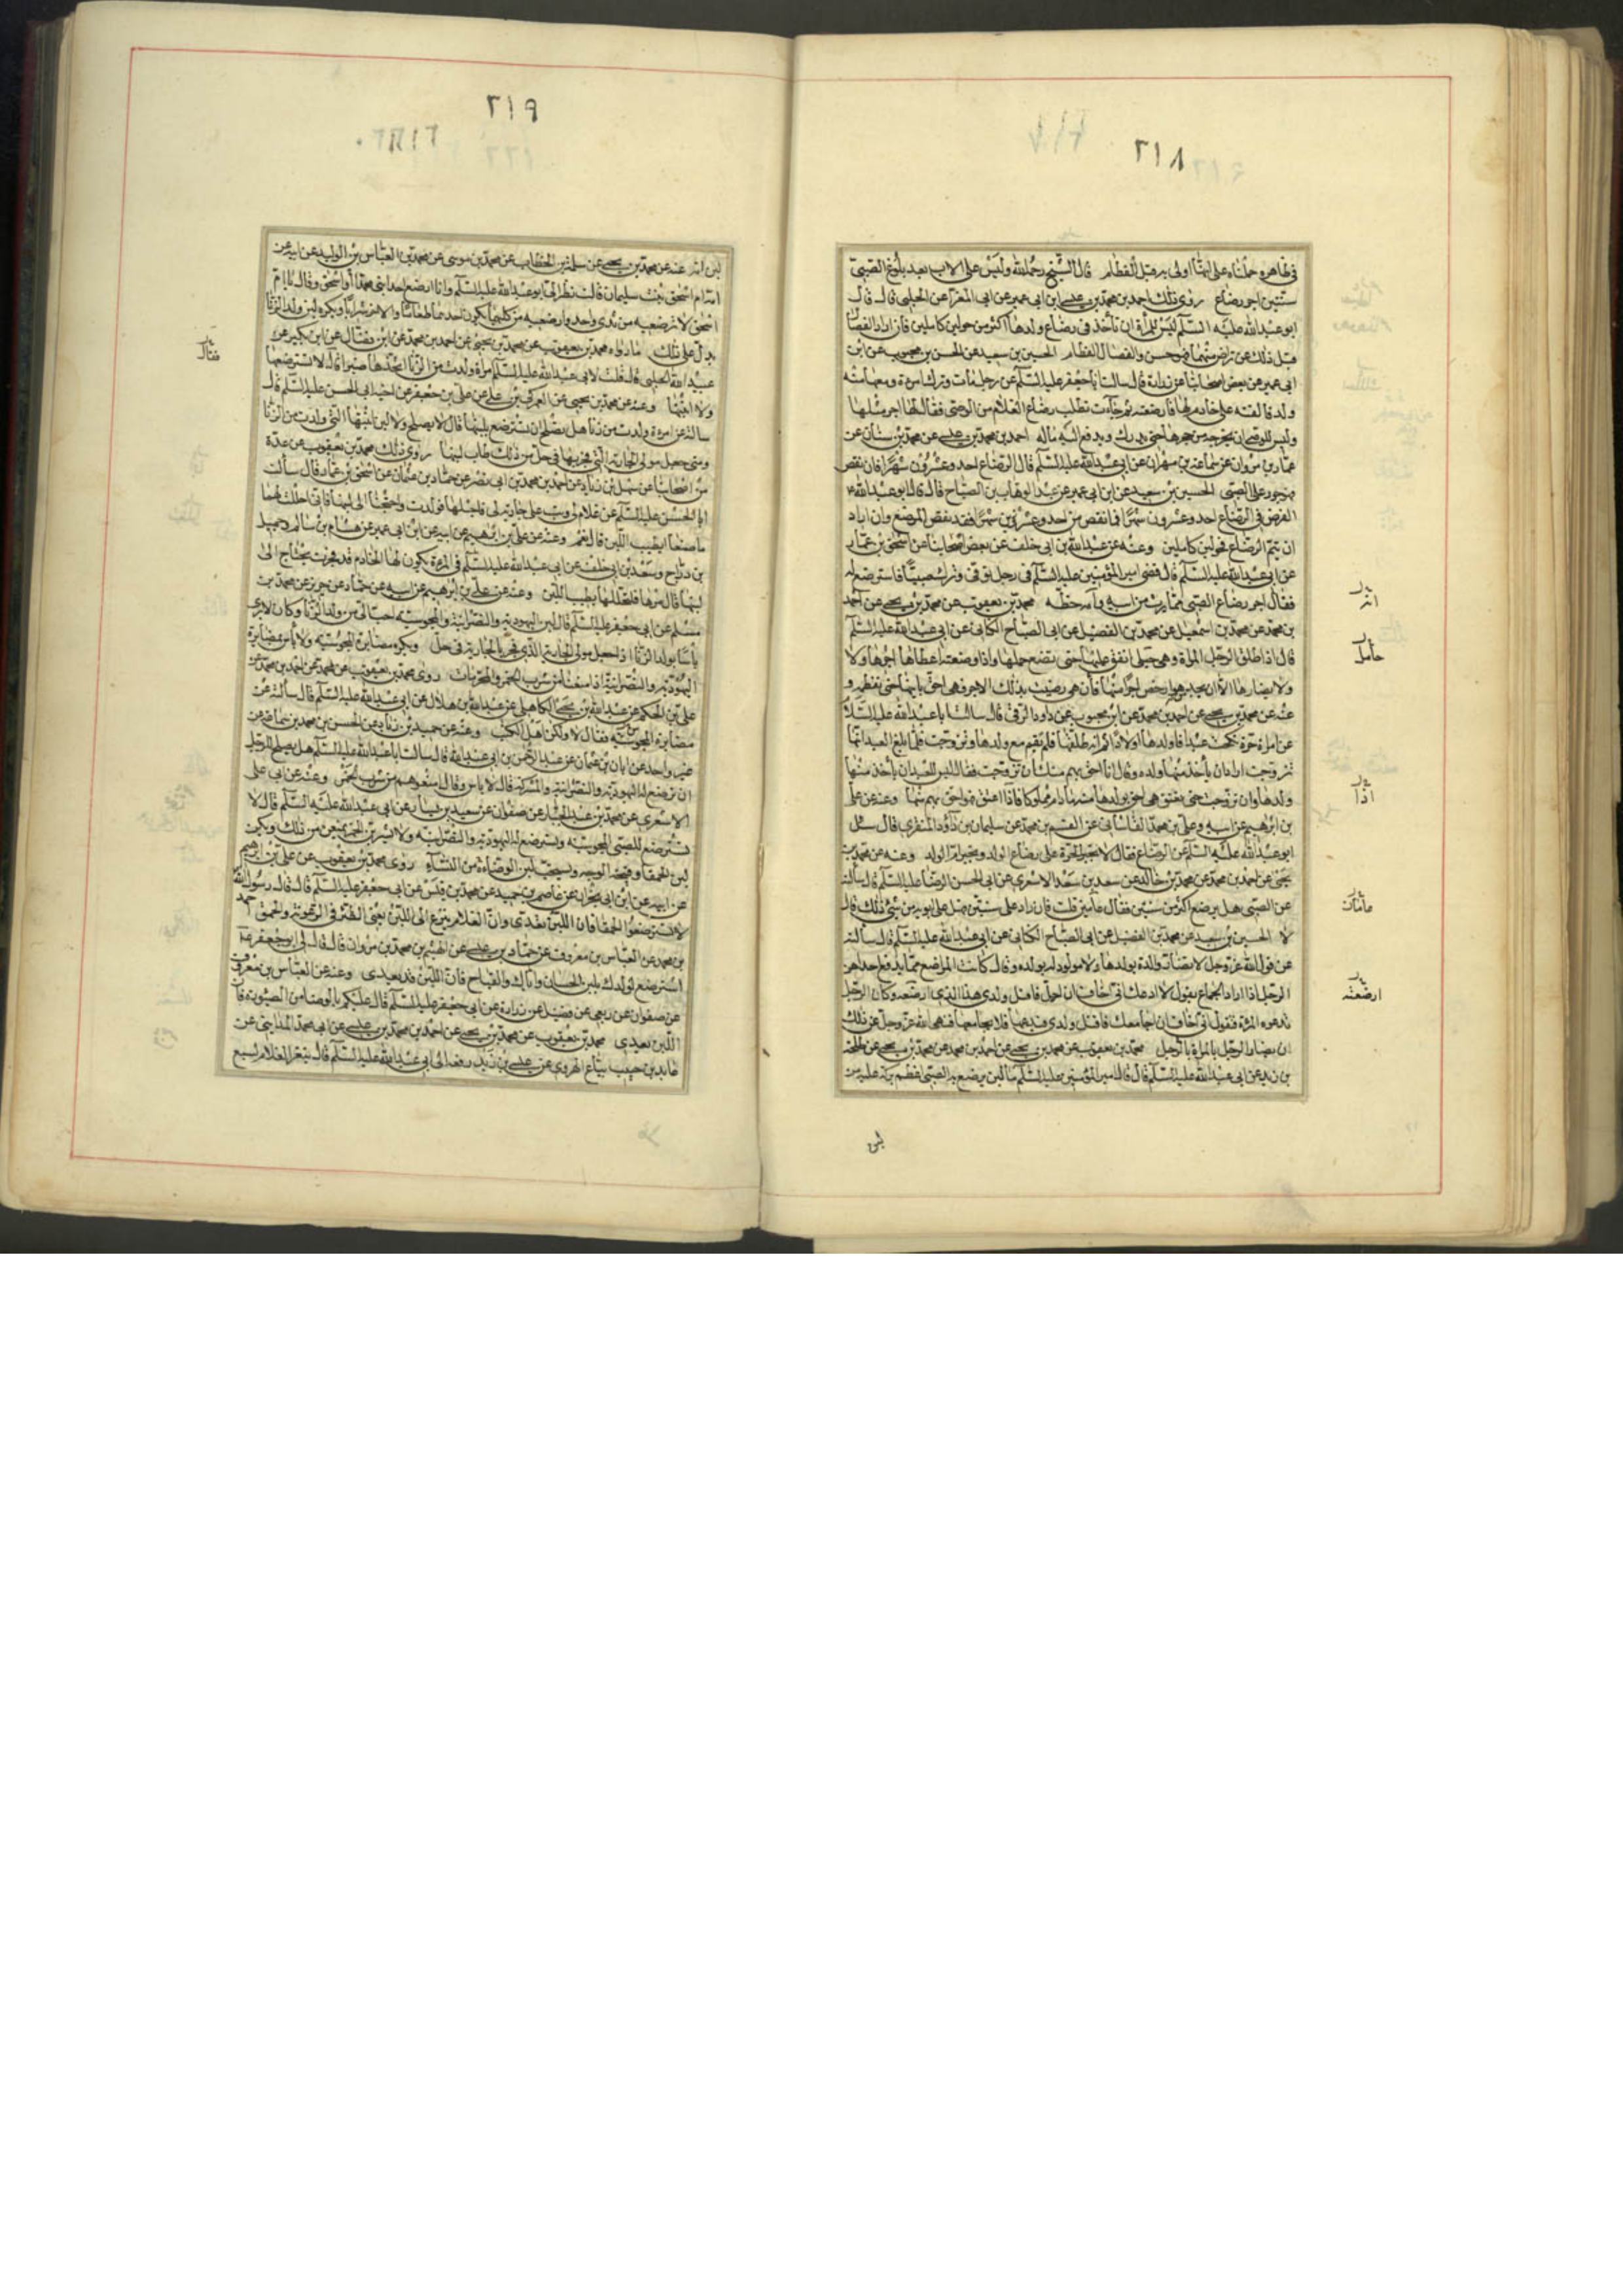 ٢١٨
في ظاهره حملناه على انها اولى به قبل الفطام قال الشيخ رحمه الله وليس على الاب بعد بلوغ الصبي
سنتين اجر رضاع روى ذلك احمد بن محمد بن عيسى ابن ابي عمير عن ابي المغرا عن الحلبي قال قال
ابو عبد الله عليه السلم ليس للمرأة ان تأخذ في رضاع ولدها اكثر من حولين كاملين فان اراد الفصال
قبل ذلك عن تراض منهما فهو حسن والفصال الفطام الحسين بن سعيد عن الحسن بن محبوب عن ابن
ابي عمير عن بعض اصحابنا عن زرارة قال سالت ابا جعفر عليه السلم عن رجل مات وترك امرءة ومعها منه
ولد فالقته على خادم لها فارضعته ثم جاءت تطلب رضاع الغلام من الوصي فقال لها اجر مثلها
وليس للوصي ان يخرجه من حجرها حتى يدرك ويدفع اليه ماله احمد بن محمد بن عيسى عن محمد بن سنان عن
عمار بن مروان عن سماعة بن مهران عن ابي عبد الله عليه السلم قال الرضاع احد وعشرون شهرا فان نقص
فهو جور على الصبي الحسين بن سعيد عن ابن ابي عمير عن عبد الوهاب بن الصباح قال قال ابو عبد الله ع
الفرض في الرضاع احد وعشرون شهرا فما نقص من احد وعشرين شهرا فقد نقص المرضع وان اراد
ان يتم الرضاع فحولين كاملين وعنه عن عبد الله بن ابي خلف عن بعض اصحابنا عن اسحق بن عمار
عن ابي عبد الله عليه السلم قال قضى امير المؤمنين عليه السلم في رجل توفى وترك صبيا فاسترضع له
فقال اجر رضاع الصبي مما يرث من ابيه وامه حظه محمد بن يعقوب عن محمد بن يحيى عن احمد
بن محمد عن محمد بن اسمعيل عن محمد بن الفضيل عن ابي الصباح الكناني عن ابي عبد الله عليه السلم
قال اذا طلق الرجل المراة وهي حبلى انفق عليها حتى تضع حملها واذا وضعته اعطاها اجرها ولا
ولا يضارها الا ان يجد من هو ارخص اجرا منها فان هي رضيت بذلك الاجر فهي احق بابنها حتى تفطمه و
عنه عن محمد بن يحيى عن احمد بن محمد عن ابن محبوب عن داود الرقي قال سالت ابا عبد الله عليه السلام
عن امراة حرة نكحت عبدا فاولدها اولادا ثم انه طلقها فلم تقم مع ولدها وتزوجت فلما بلغ العبد انها
تزوجت اراد ان يأخذ منها ولده وقال انا احق بهم منك ان تزوجت فقال ليس للعبد ان يأخذ منها
ولدها وان تزوجت حتى يعتق هي احق بولدها منه ما دام مملوكا فاذا اعتق فهو احق بهم منها وعنه عن علي
بن ابرهيم عن ابيه وعلي بن محمد القاساني عن القسم بن محمد عن سليمان بن داود المنقري قال سئل
ابو عبد الله عليه السلم عن الرضاع فقال لا تجبر الحرة على رضاع الولد وتجبر ام الولد وعنه عن محمد بن
يحيى عن احمد بن محمد عن محمد بن خالد عن سعد بن سعد الاشعري عن ابي الحسن الرضا عليه السلم قال سألته
عن الصبي هل يرضع اكثر من سنتين فقال عامين قلت فان زاد على سنتين هل على ابويه من شئ ذلك قال
لا الحسين بن سعيد عن محمد بن الفضيل عن ابي الصباح الكناني عن ابي عبد الله عليه السلم قال سألته
عن قول الله عز وجل لا تضار والدة بولدها ولا مولود له بولده وقال كانت المراضع مما يدفع احداهن
الرجل اذا اراد الجماع يقول لا ادعك اني اخاف ان احبل فاقتل ولدي هذا الذي ارضعه وكان الرجل
تدعوه المرءة فتقول اني اخاف ان اجامعك فاقتل ولدي فيدعها فلا يجامعها فنهى الله عز وجل عن ذلك
ان يضار الرجل بالمراة بالرجل محمد بن يعقوب عن محمد بن يحيى عن احمد بن محمد عن محمد بن يحيى عن طلحة
بن زيد عن ابي عبد الله عليه السلم قال قال امير المؤمنين عليه السلم ما لبن يرضع به الصبي اعظم بركة عليه من
انه
حامل
اذا
مامات
ارضعته
لبن
٢١٩
لبن امه عنه عن محمد بن يحيى عن سلمة بن الخطاب عن محمد بن موسى عن محمد بن العباس بن الوليد عن ابيه عن
امه ام اسحق بنت سليمان قالت نظر الي ابو عبد الله عليه السلم وانا ارضع احد ابني محمدا او اسحق وقال يا ام
اسحق لا ترضعيه من ثدي واحد وارضعيه من كليهما يكون احدهما طعاما والاخر شرابا ويكره لبن ولد الزنا
يدل على ذلك ما رواه محمد بن يعقوب عن محمد بن يحيى عن احمد بن محمد عن ابن فضال عن ابن بكير عن
عبيد الله الحلبي قال قلت لابي عبد الله عليه السلم امراة ولدت من الزنا اتخذها ظئرا قال لا تسترضعها
ولا ابنتها وعنه عن محمد بن يحيى عن العمركي بن علي عن علي بن جعفر عن اخيه ابي الحسن عليه السلم قال
سالته عن امرءة ولدت من زنا هل يصلح ان تسترضع بلبنها قال لا يصلح ولا لبن ابنتها التي ولدت من الزنا
ومتى جعل مولى الجارية التي فجر بها في حل من ذلك طاب لبنها روى ذلك محمد بن يعقوب عن عدة
من اصحابنا عن سهل بن زياد عن احمد بن محمد بن ابي نصر عن حماد بن عثمان عن اسحق بن عمار قال سألت
ابا الحسن عليه السلم عن غلام لي وثب على جارية لي فاحبلها فولدت واحتجنا الى لبنها فاني احللت لهما
ما صنعا ايطيب اللبن قال نعم وعنه عن علي بن ابرهيم عن ابيه عن ابن ابي عمير عن هشام بن سالم وجميل
بن دراج وسعد بن ابي خلف عن ابي عبد الله عليه السلم في المرءة يكون لها الخادم قد فجرت يحتاج الى
لبنها قال مرها فلتحللها يطيب اللبن وعنه عن علي بن ابرهيم عن ابيه عن حماد عن حريز عن محمد بن
مسلم عن ابي جعفر عليه السلم قال لبن اليهودية والنصرانية والمجوسية احب الي من ولد الزنا وكان لا يرى
بأسا بولد الزنا اذا جعل مولى الجارية الذي فجر بالجارية في حل ويكره مضايرة المجوسية ولا بأس بمضايرة
اليهودية والنصرانية اذا منعنا من شرب الخمر والمحرمات روى محمد بن يعقوب عن محمد عن احمد بن محمد عن
علي بن الحكم عن عبد الله بن يحيى الكاهلي عن عبد الله بن هلال عن ابي عبد الله عليه السلم قال سألته عن
مضايرة المجوسية فقال لا ولكن اهل الكتب وعنه عن حميد بن زياد عن الحسن بن محمد بن سماعة عن
غير واحد عن ابان بن عثمان عن عبد الرحمن بن ابي عبد الله قال سالت ابا عبد الله عليه السلم هل يصلح للرجل
ان ترضع له اليهودية والنصرانية والمشركة قال لا باس وقال امنعوهم من شرب الخمر وعنه عن ابي علي
الاشعري عن محمد بن عبد الجبار عن صفوان عن سعيد بن يسار عن ابي عبد الله عليه السلم قال لا
تسترضع للصبي المجوسية وتسترضع له اليهودية والنصرانية ولا يشربن الخمر يمنعن من ذلك ويكره
لبن الحمقا وقبيحة الوجه ويستحب لبن الوضاءة من النساء روى محمد بن يعقوب عن علي بن ابرهيم
عن ابيه عن ابن ابي نجران عن عاصم بن حميد عن محمد بن قيس عن ابي جعفر عليه السلم قال قال رسول الله
لا تسترضعوا الحمقا فان اللبن يعدى وان الغلام ينزع الى اللبن يعني الظئر في الرعونة والحمق احمد
بن محمد عن العباس بن معروف عن حماد بن عيسى عن الهيثم بن محمد بن مروان قال قال لي ابو جعفر ع
استرضع لولدك بلبن الحسان واياك والقباح فان اللبن قد يعدي وعنه عن العباس بن معروف
عن صفوان عن ربعي عن فضيل عن زرارة عن ابي جعفر عليه السلم قال عليكم بالوضا من الظئورة فان
اللبن يعدي محمد بن يعقوب عن محمد بن يحيى عن احمد بن محمد بن عيسى عن ابي محمد المدايني عن
عايد بن حبيب بياع الهروي عن عيسى بن زيد رفعه الى ابي عبد الله عليه السلم قال يثغر الغلام لسبع
فقال